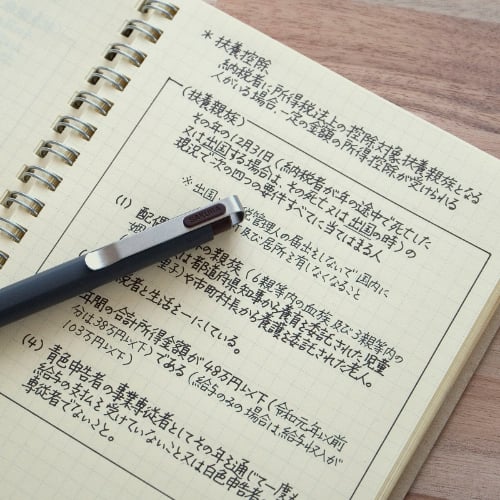 * 扶養控除
納税者に所得税法上の控除対象扶養親族となる
人がいる場合、一定の金額の所得控除が受けられる
(扶養親族)
その年の12月31日(納税者が年の途中で死亡した
又は出国する場合は、その死亡又は出国の時)の
現況で、次の四つの要件すべてに当てはまる人
※出国 納税管理人の届出をしないで国内に
及び居所を有しなくなること
(1) 配偶 の親族(6親等内の血族及び3親等内の
姻 は都道府県知事から養育を委託された児童
里子)や市町村長から養護を委託された老人。
税者と生活を一にしている。
年間の合計所得金額が48万円以下(令和元年以前
分は38万円以下)である(給与のみの場合は給与収入が
103万円以下)
(4) 青色申告者の事業専従者としてその年を通じて一度も
給与の支払を受けていないこと又は白色申告者
専従者でないこと。